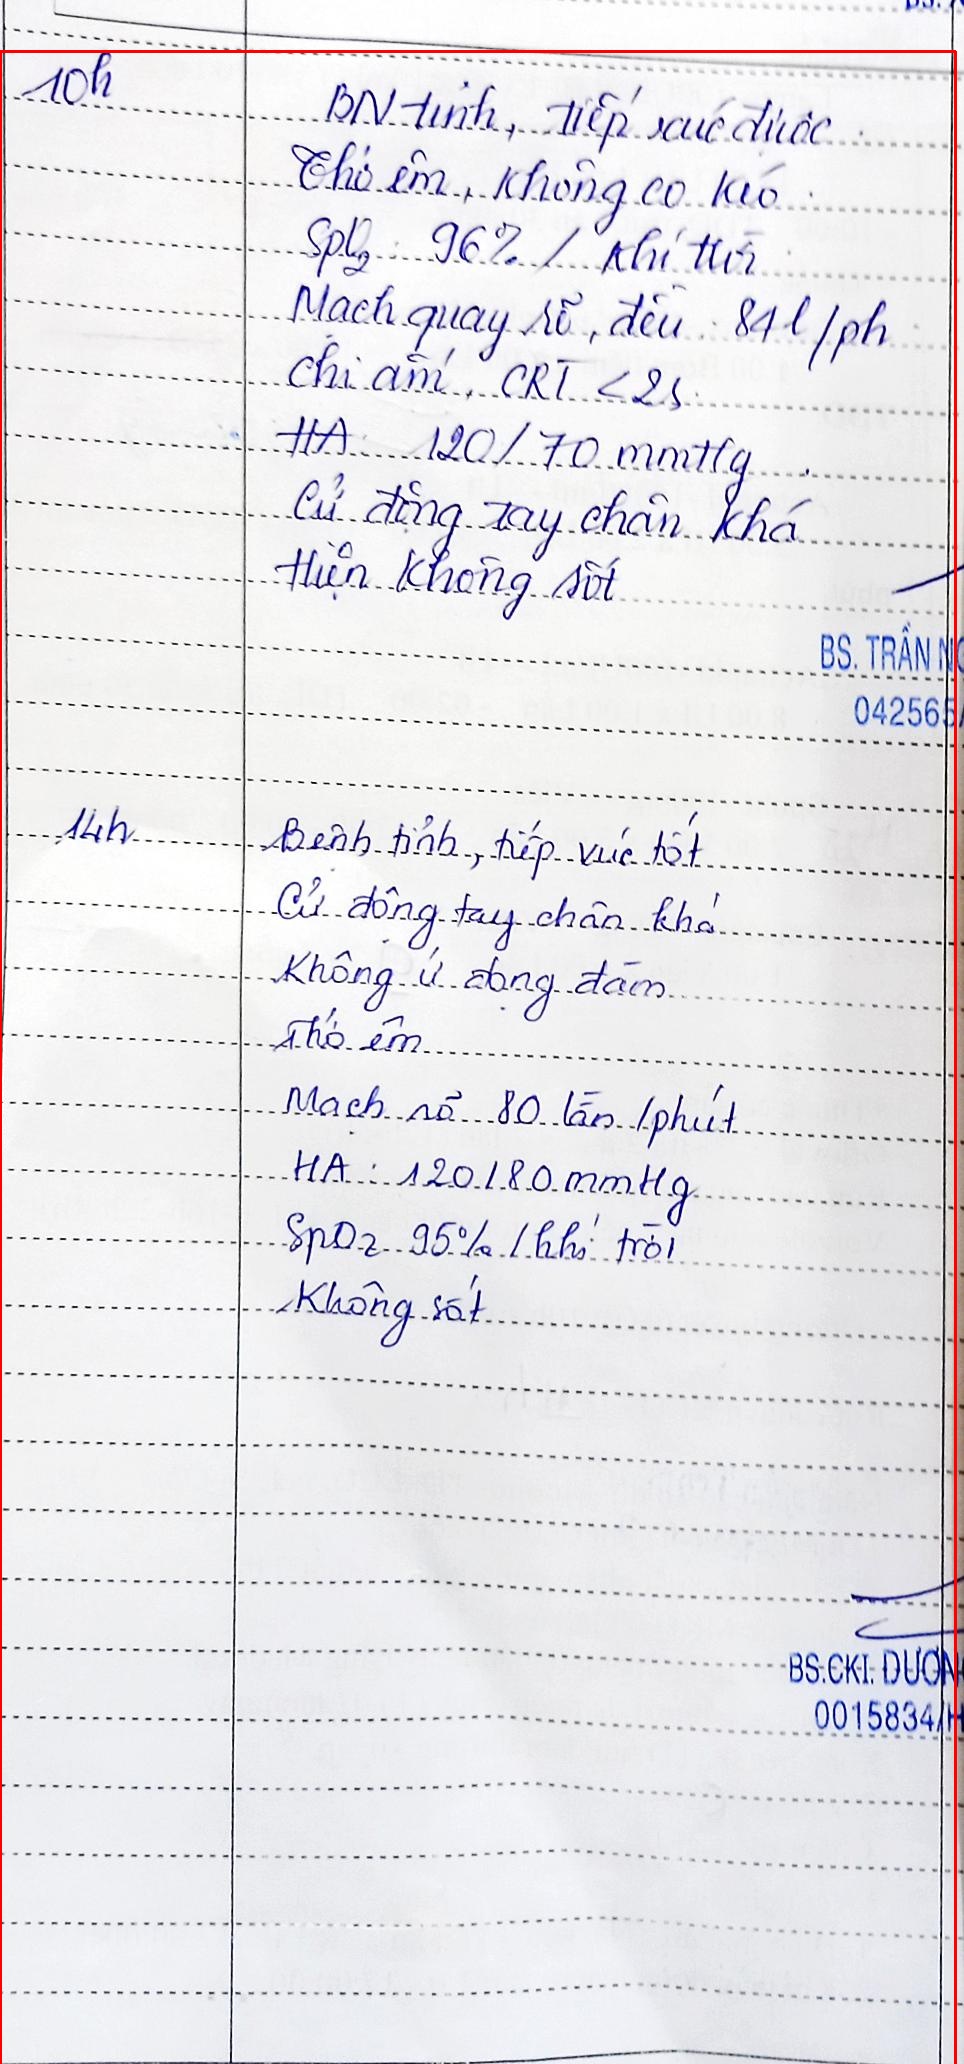 10h
BN tỉnh, tiếp xúc được.
Thở êm, không co kéo.
SpO2: 96% / khí trời
Mạch quay rõ, đều: 84 l/ph
Chi ấm, CRT < 2s
HA: 120/70 mmHg.
Cử động tay chân khá
Hiện không sốt
BS. TRẦN
042565
14h
Bệnh tỉnh, tiếp xúc tốt
Cử động tay chân khá
Không ứ đọng đàm
Thở êm
Mạch rõ 80 lần /phút
HA: 120/80 mmHg
SpO2 95% / khí trời
Không sốt
BS.CKI. DƯƠN
0015834/H